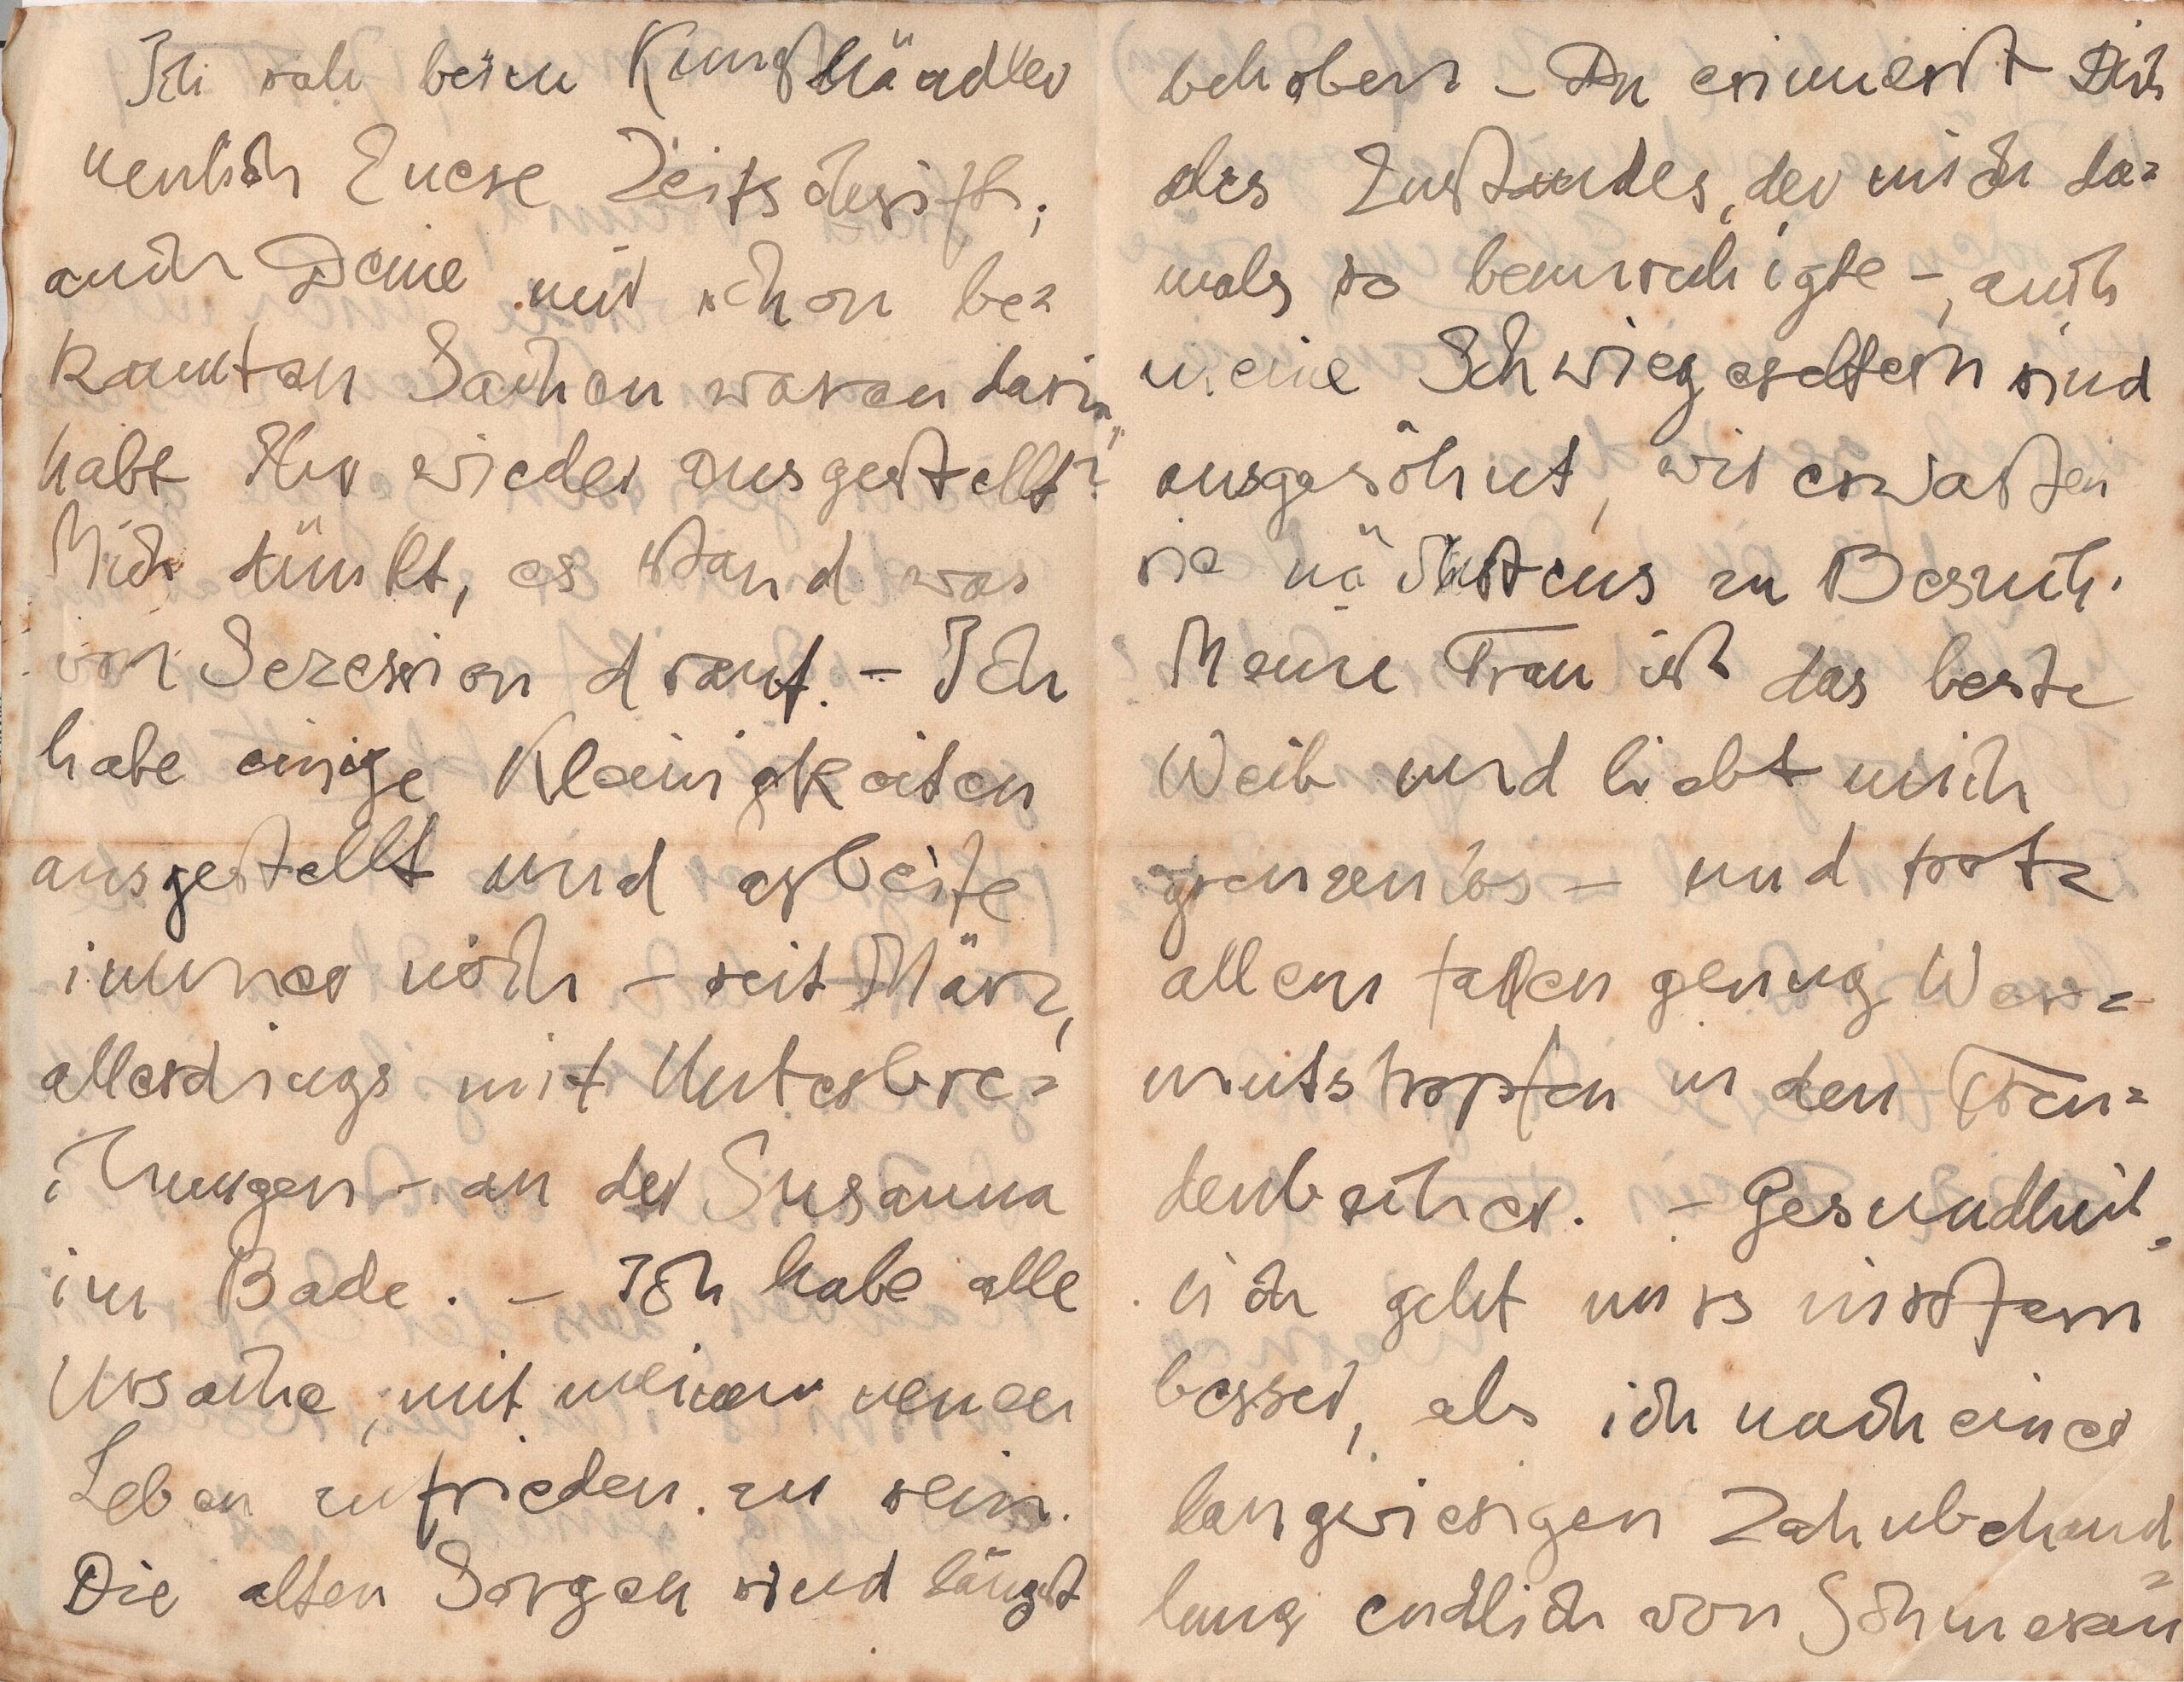 Ich sah beim Kunsthändler
neulich Euere Zeitschrift;
auch Deine mir schon be=
kannten Sachen waren darin,
habt Ihr wieder ausgestellt?
Mich dünkt, es stand was
von Sezession drauf. – Ich
habe einige Kleinigkeiten
ausgestellt und arbeite
immer noch – seit März,
allerdings mit Unterbre=
chungen – an der Susanna
im Bade. – Ich habe alle
Ursache, mit meinem neuen
Leben zufrieden zu sein.
Die alten Sorgen sind längst
behoben – Du erinnerst Dich
des Zustandes, der mich da=
mals so beunruhigte –, auch
meine Schwiegereltern sind
ausgesöhnt, wir erwarten
sie nächstens zu Besuch.
Meine Frau ist das beste
Weib und liebt mich
grenzenlos – und trotz
allem fallen genug Wer=
mutstropfen in den Freu=
denbecher. – Gesundheit=
lich geht uns insofern
besser, als ich nach einer
langwierigen Zahnbehand=
lung endlich von Schmerzen